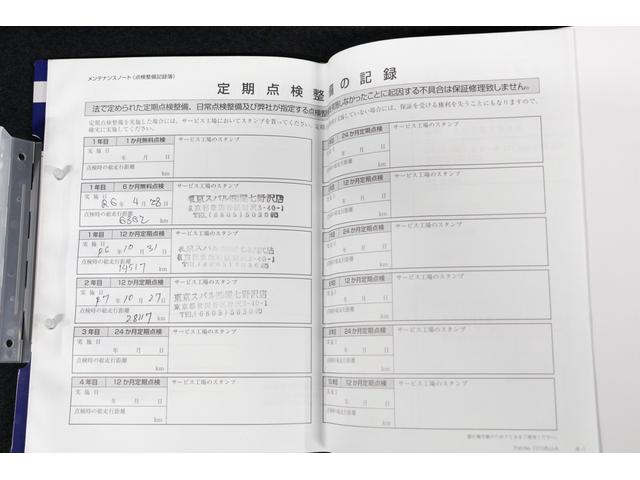 メンテナンスノート（点検整備記録簿）
定期点検整備の記録
法で定められた定期点検整備、日常点検整備及び弊社が指定する点検整備
しなかったことに起因する不具合は保証修理致しません。
定期点検を実施した場合には、サービス工場においてスタンプを貰ってください。定期
実施していない場合には、保証を受ける権利を失うことにもなりますので、
確実に実施してください。
1年目 1か月無料点検 サービス工場のスタンプ
実施日
年 月 日
点検時の総走行距離
km
1年目 6か月無料点検 サービス工場のスタンプ
実施日
R6年 4月 28日
点検時の総走行距離
6382 km
東京スバル㈱
TEL
1年目 12か月定期点検 サービス工場のスタンプ
実施日
R6年 10月 31日
点検時の総走行距離
14517 km
東京スバル㈱
TEL
2年目 12か月定期点検 サービス工場のスタンプ
実施日
R7年 10月 27日
点検時の総走行距離
28117 km
東京スバル㈱
TEL
3年目 24か月定期点検 サービス工場のスタンプ
実施日
年 月 日
点検時の総走行距離
km
4年目 12か月定期点検 サービス工場のスタンプ
実施日
年 月 日
点検時の総走行距離
km
24か月定期点検 サービス工場のスタンプ
年 月 日
km
12か月定期点検 サービス工場のスタンプ
年 月 日
km
24か月定期点検 サービス工場のスタンプ
年 月 日
km
12か月定期点検 サービス工場のスタンプ
年 月 日
km
24か月定期点検 サービス工場のスタンプ
年 月 日
km
12か月定期点検 サービス工場のスタンプ
年 月 日
km